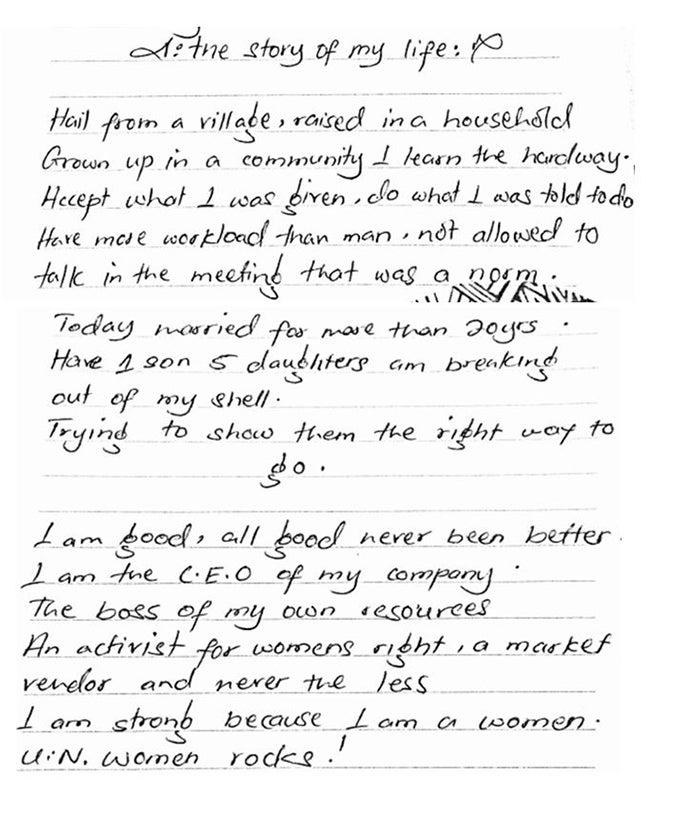 The story of my life:
Hail from a village, raised in a household
Grown up in a community I learn the hardway.
Accept what I was given, do what I was told to do
Have more workload than man, not allowed to
talk in the meeting that was a norm.
Today married for more than 20yrs.
Have 1 son 5 daughters am breaking
out of my shell.
Trying to show them the right way to
go.
I am good, all good never been better.
I am the C.E.O of my company.
The boss of my own resources
An activist for womens right, a market
vendor and never the less
I am strong because I am a women.
U.N. women rocks.!